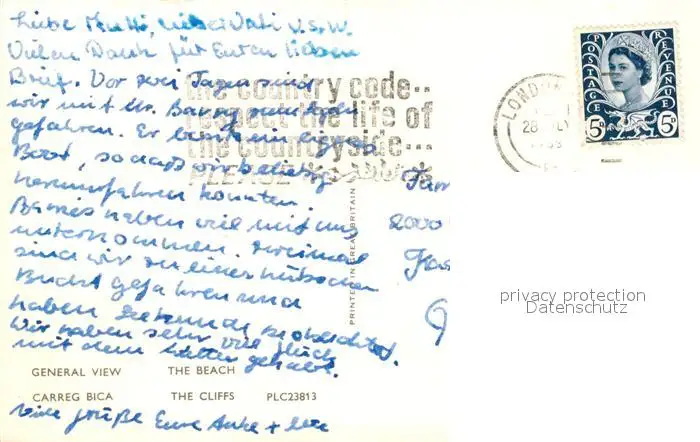 Liebe Mutti, lieber Vati u.s.w.
Vielen Dank für Euren lieben
Brief. Vor zwei Tagen sind
wir mit Mr.
gefahren. Er
Boot, so dass wir beliebig
herumfahren konnten.
haben viel mit uns
unternommen. zweimal
sind wir zu einer hübschen
Bucht gefahren und
haben Seehunde beobachtet.
Wir haben sehr viel Glück
mit dem Wetter gehabt.
Viele Grüße Eure Anke +
the country code..
respect the life of
the countryside...
PLEASE
LONDON
28
POSTAGE REVENUE
5D 5D
2000
PRINTED IN GREAT BRITAIN
privacy protection
Datenschutz
GENERAL VIEW THE BEACH
CARREG BICA THE CLIFFS PLC23813